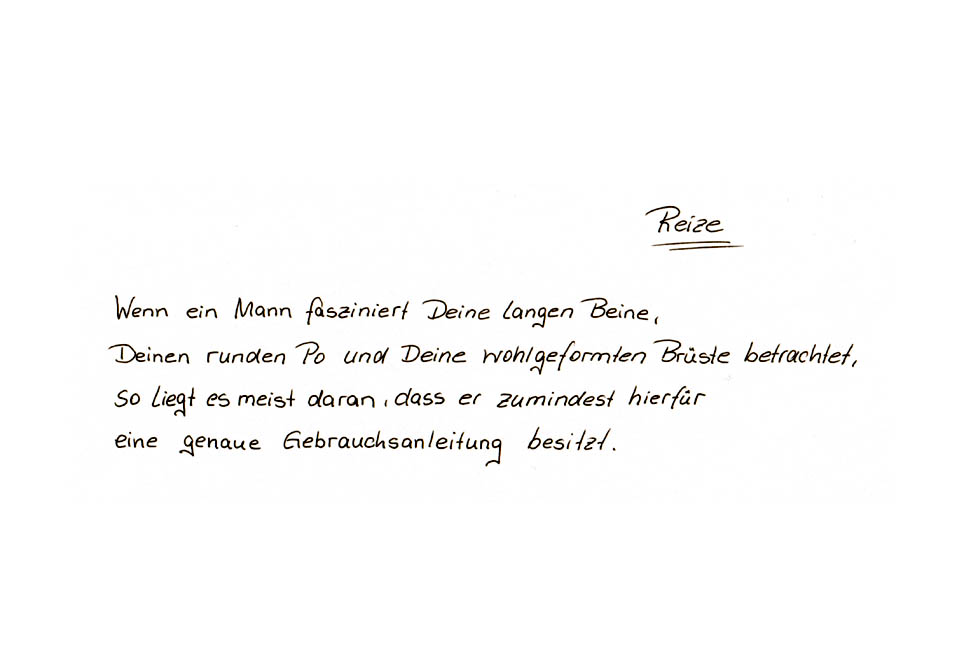 Reize
Wenn ein Mann fasziniert Deine langen Beine,
Deinen runden Po und Deine wohlgeformten Brüste betrachtet,
so liegt es meist daran, dass er zumindest hierfür
eine genaue Gebrauchsanleitung besitzt.